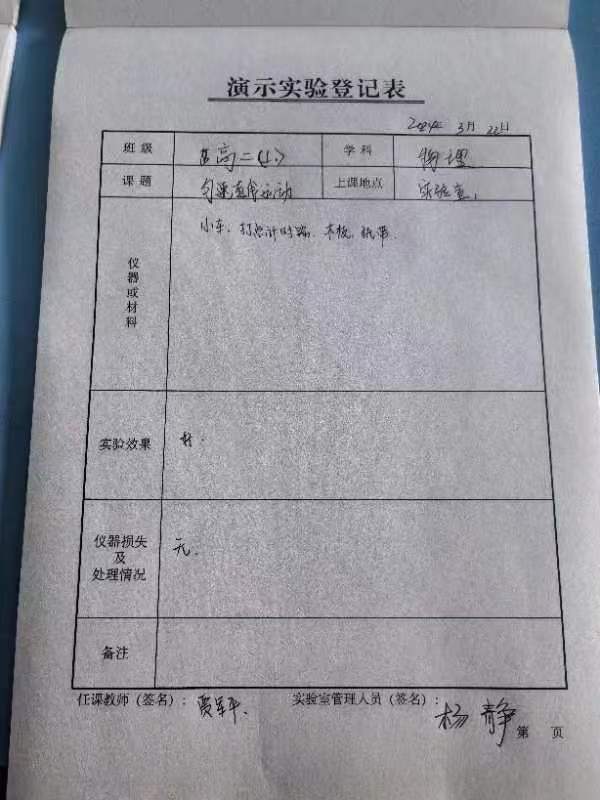 演示实验登记表
2024年 3月 22日
班级 高二(1) 学科 物理
课题 匀速直线运动 上课地点 实验室1
仪器或材料 小车、打点计时器、木板、纸带.
实验效果 好.
仪器损失及处理情况 无.
备注
任课教师(签名): 贾军平. 实验室管理人员(签名): 杨静
第 页